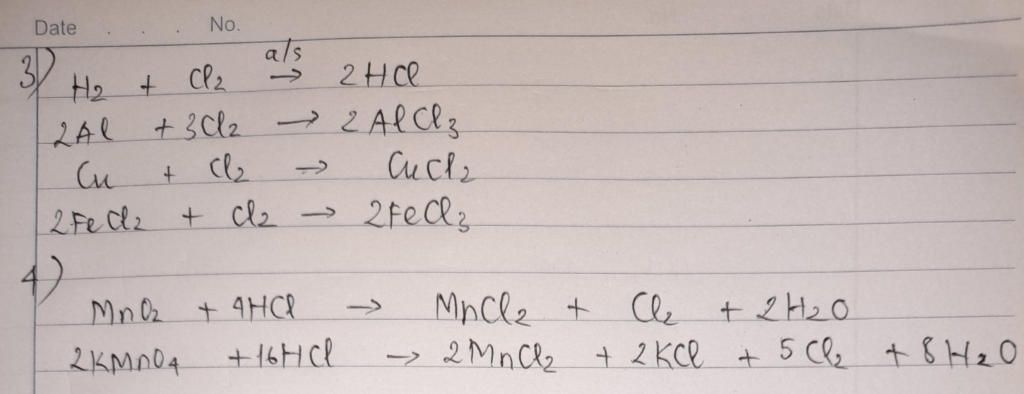 Date . . . No.
3) H2 + Cl2 a/s → 2HCl
2Al + 3Cl2 → 2AlCl3
Cu + Cl2 → CuCl2
2FeCl2 + Cl2 → 2FeCl3
4)
MnO2 + 4HCl → MnCl2 + Cl2 + 2H2O
2KMnO4 + 16HCl → 2MnCl2 + 2KCl + 5Cl2 + 8H2O